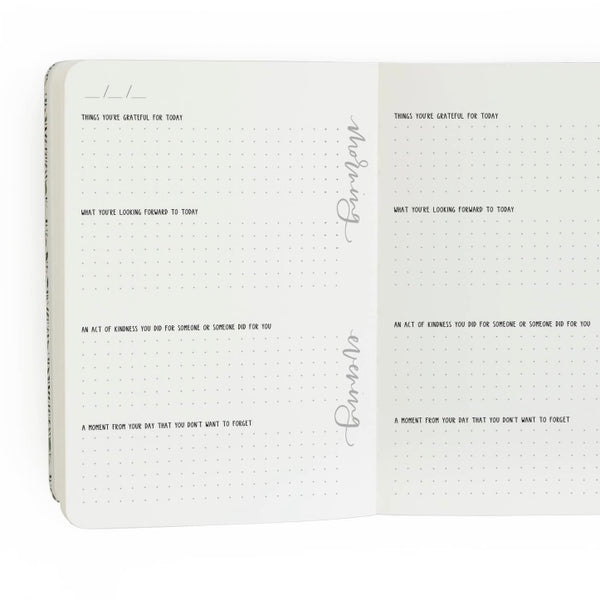 __/__/__
THINGS YOU'RE GRATEFUL FOR TODAY
WHAT YOU'RE LOOKING FORWARD TO TODAY
morning
AN ACT OF KINDNESS YOU DID FOR SOMEONE OR SOMEONE DID FOR YOU
A MOMENT FROM YOUR DAY THAT YOU DON'T WANT TO FORGET
evening
THINGS YOU'RE GRATEFUL FOR TODAY
WHAT YOU'RE LOOKING FORWARD TO TODAY
AN ACT OF KINDNESS YOU DID FOR SOMEONE OR SOMEONE DID FOR YOU
A MOMENT FROM YOUR DAY THAT YOU DON'T WANT TO FORGET